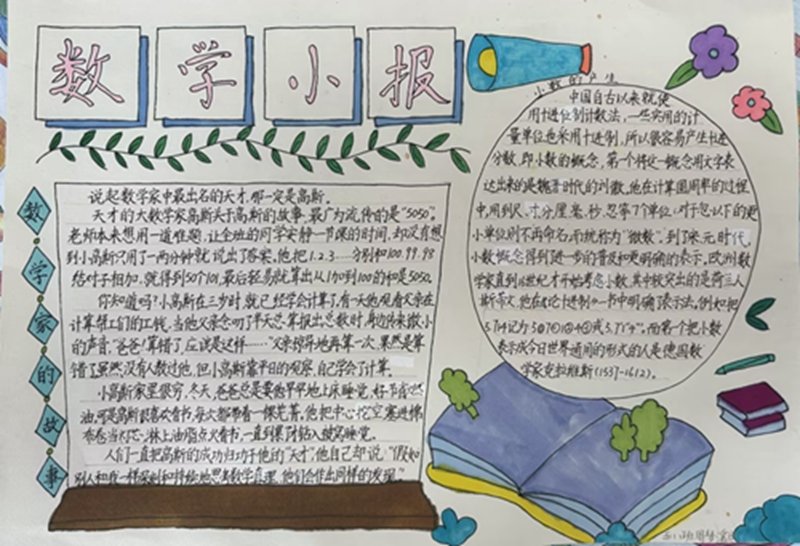 数学小报
数学家的故事
说起数学家中最出名的天才,那一定是高斯。
天才的大数学家高斯关于高斯的故事,最广为流传的是“5050”。
老师本来想用一道难题,让全班的同学安静一节课的时间,却没有想
到小高斯只用了一两分钟就说出了答案。他把1.2.3……分别和100.99.98
结对子相加,就得到50个101,最后轻易就算出从1加到100的和是5050。
你知道吗?小高斯在三岁时,就已经学会计算了,有一天他观看父亲在
计算帮工们的工钱,当他父亲念叨了半天总算报出总数时,身边传来微小
的声音,“爸爸!算错了,应该是这样……”父亲惊异地再算一次,果然是算
错了。虽然没有人教过他,但小高斯靠平日的观察,自己学会了计算。
小高斯家里很穷,冬天,爸爸总是要他早早地上床睡觉,好节省燃
油,可是高斯很喜欢看书,每次都带着一棵芜菁,他把中心挖空塞进棉
布卷当灯芯,淋上油脂点火看书,一直到累了才钻入被窝睡觉。
人们一直把高斯的成功归功于他的“天才”,他自己却说:“假如
别人和我一样深刻和持续地思考数学真理,他们会作出同样的发现。”
小数的产生
中国自古以来就使
用十进位制计数法,一些实用的计
量单位也采用十进制,所以很容易产生十进
分数,即小数的概念,第一个将这一概念用文字表
达出来的是魏晋时代的刘徽,他在计算圆周率的过程
中,用到尺、寸、分、厘、毫、秒、忽等7个单位;对于忽以下的更
小单位则不再命名,而统称为“微数”,到了宋元时代,
小数概念得到进一步的普及和更明确的表示,欧洲数
学家直到16世纪才开始考虑小数,其中较突出的是荷兰人
斯蒂文,他在《论十进制》一书中明确了表示法,例如把
而第一个把小数
表示成今日世界通用的形式的人是德国数
学家克拉维斯(1537-1612)。